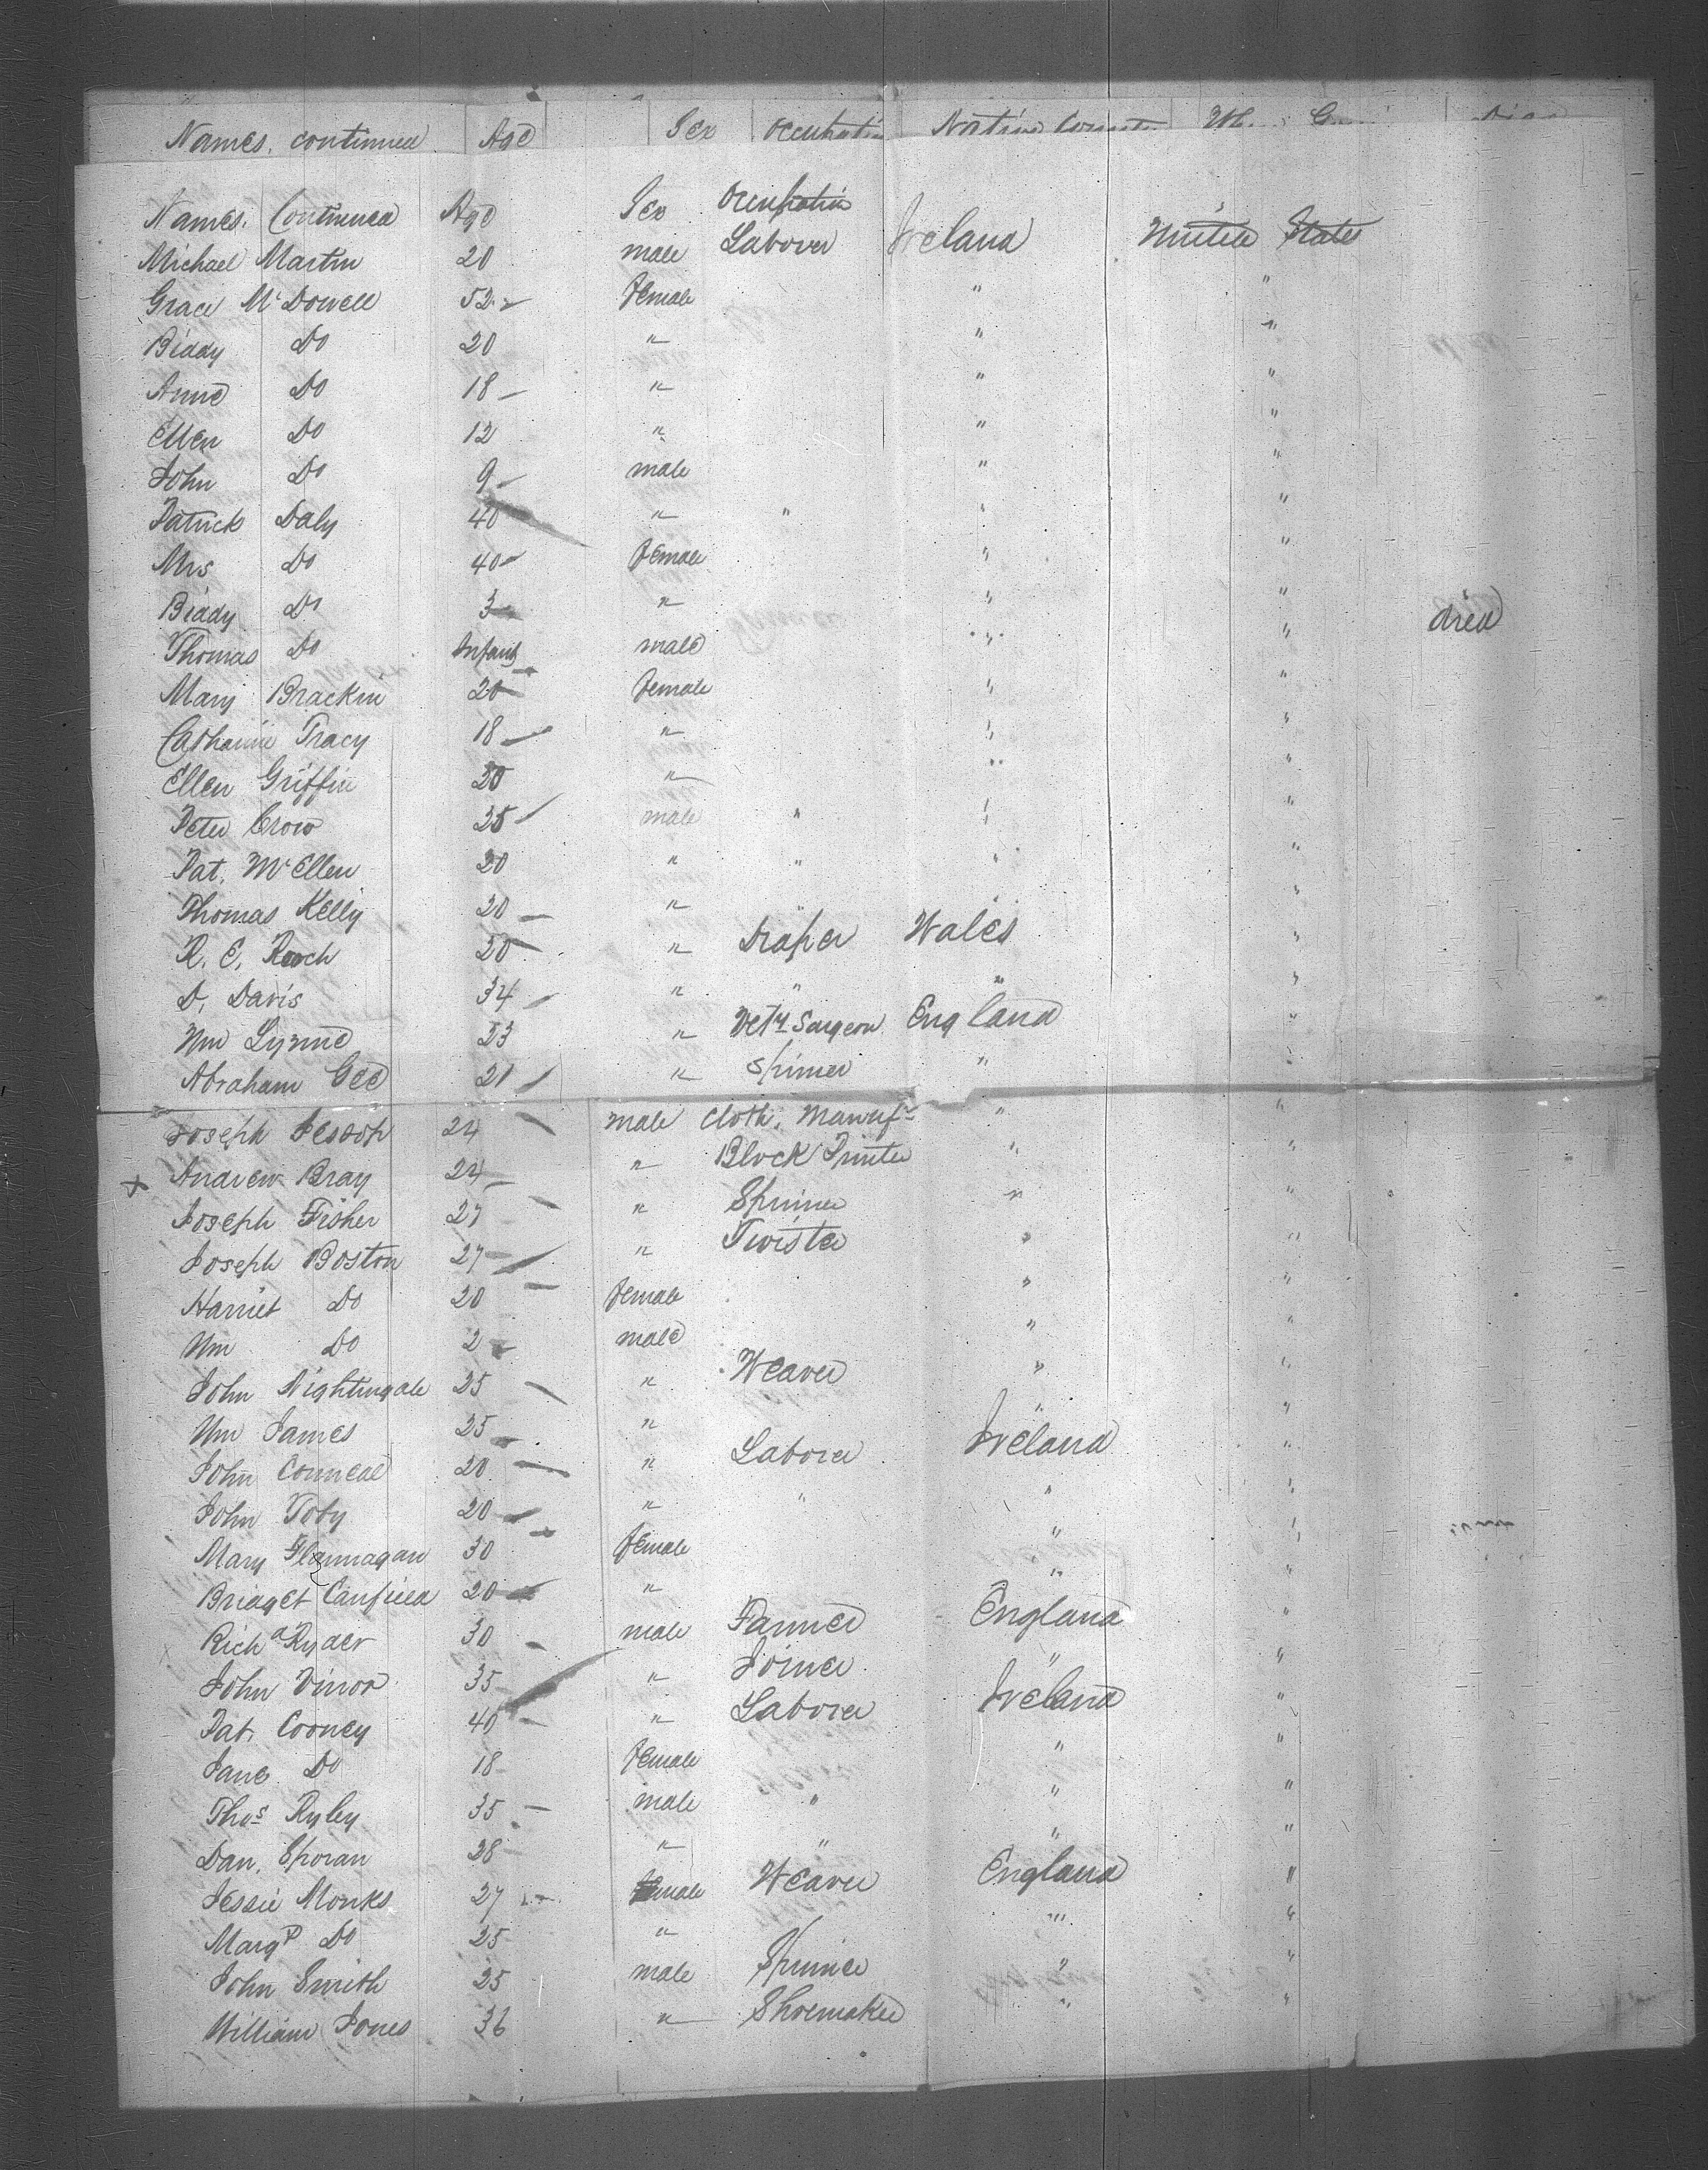 Names. continued Age Sex Occupatin Native Count
Names. Continued Age Sex Occupatin
Michael Martin 20 male Labourer Ireland United States
Grace McDowell 52 Female " "
Biddy Do 20 " " "
Anne Do 18 " " "
Ellen Do 12 " " "
John Do 9 male " "
Patrick Daly 40 " " " "
Mrs Do 40 Female " "
Biddy Do 3 " " "
Thomas Do Infant male " " died
Mary Brackin 20 Female " "
Catharine Tracy 18 " " "
Ellen Griffin 20 " " "
Peter Crow 25 male " " "
Pat. McEllen 20 " " " "
Thomas Kelly 20 " " " "
R. E. 20 " Draper Wales "
D. Davis 34 " " " "
Wm Lynne 23 " Vety Surgeon England "
Abraham Gee 21 " Spinner " "
Joseph Jessop 24 male Cloth. Manufr " "
x Andrew Bray 24 " Block Printer " "
Joseph Fisher 27 " Spinner " "
Joseph Boston 27 " Twister " "
Harriet Do 20 Female " "
Wm Do 2 male " "
John Nightingale 25 " Weaver " "
Wm James 25 " " "
John Conneal 20 " Laborer Ireland "
John Toby 20 " " " "
Mary Flannagan 30 Female " "
Bridget Canfield 20 " " "
Richd Ryder 30 male Farmer England "
John Vinor 35 " Joiner " "
Pat. Cooney 40 " Laborer Ireland "
Jane Do 18 Female " "
Thos Ryley 35 male " " "
Dan. Sporan 28 " " " "
Jessie Monks 27 Female Weaver England "
Margt Do 25 " " "
John Smith 25 male Spinner " "
William Jones 36 " Shoemaker " "